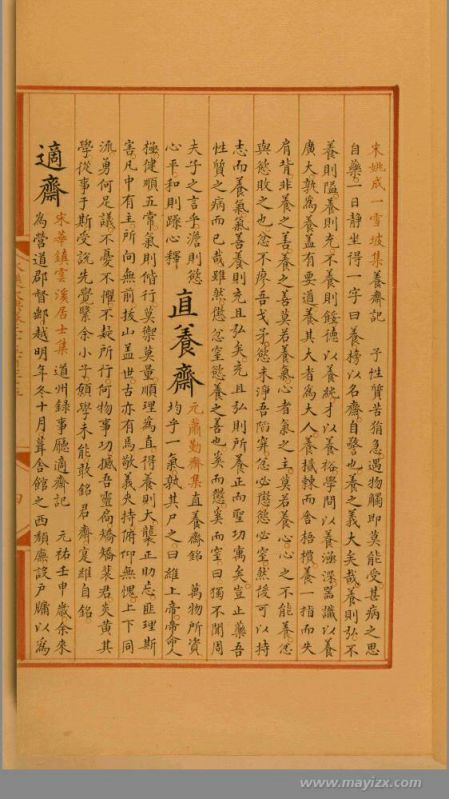 宋姚成一雪坡集養齋記 予性質苦狷急遇物觸即莫能受甚病之思
自藥一日静坐得一字曰養榜以名齋自警也養之義大矣哉養則弘不
養則隘養則充不養則餒德以養純才以養裕學問以養涵深器識以養
廣大孰為養蓋有要道養其大者為大人養樲棘而舍梧檟養一指而失
肩背非養之善養之善莫若養氣心者氣之主莫若養心心之不能養忿
與慾敗之也忿不瘳吾戈矛慾未淨吾陷穽忿必懲慾必窒然後可以持
志而養氣氣善養則充且弘矣充且弘則所養正而聖功寓矣豈止藥吾
性質之病而已哉雖然懲忿窒慾養之善也奚而懲奚而窒曰獨不聞周
夫子之言乎澹則慾
心平和則躁心釋 直養齋 元蕭勤齋集直養齋銘 萬物所資
均乎一氣孰其尸之曰維上帝帝命人
極健順五常氣則偕行莫禦莫量順理為直得養則大襲正助忘匪理斯
害凡中有主所向無前拔山蓋世古亦有焉敬義夾持俯仰無愧上下同
流勇何足議不憂不懼不疑所行何物事功撼吾靈扃矯矯裴君炎黄其
學從事于斯受説先覺緊余小子頗學未能敢銘君齋寔維自銘
適齋 宋華鎮雲溪居士集 道州録事廳適齋記 元祐壬申歲余来
為營道郡督郵越明年冬十月葺舎館之西頽廡設戸牖以為
www.mayizx.com